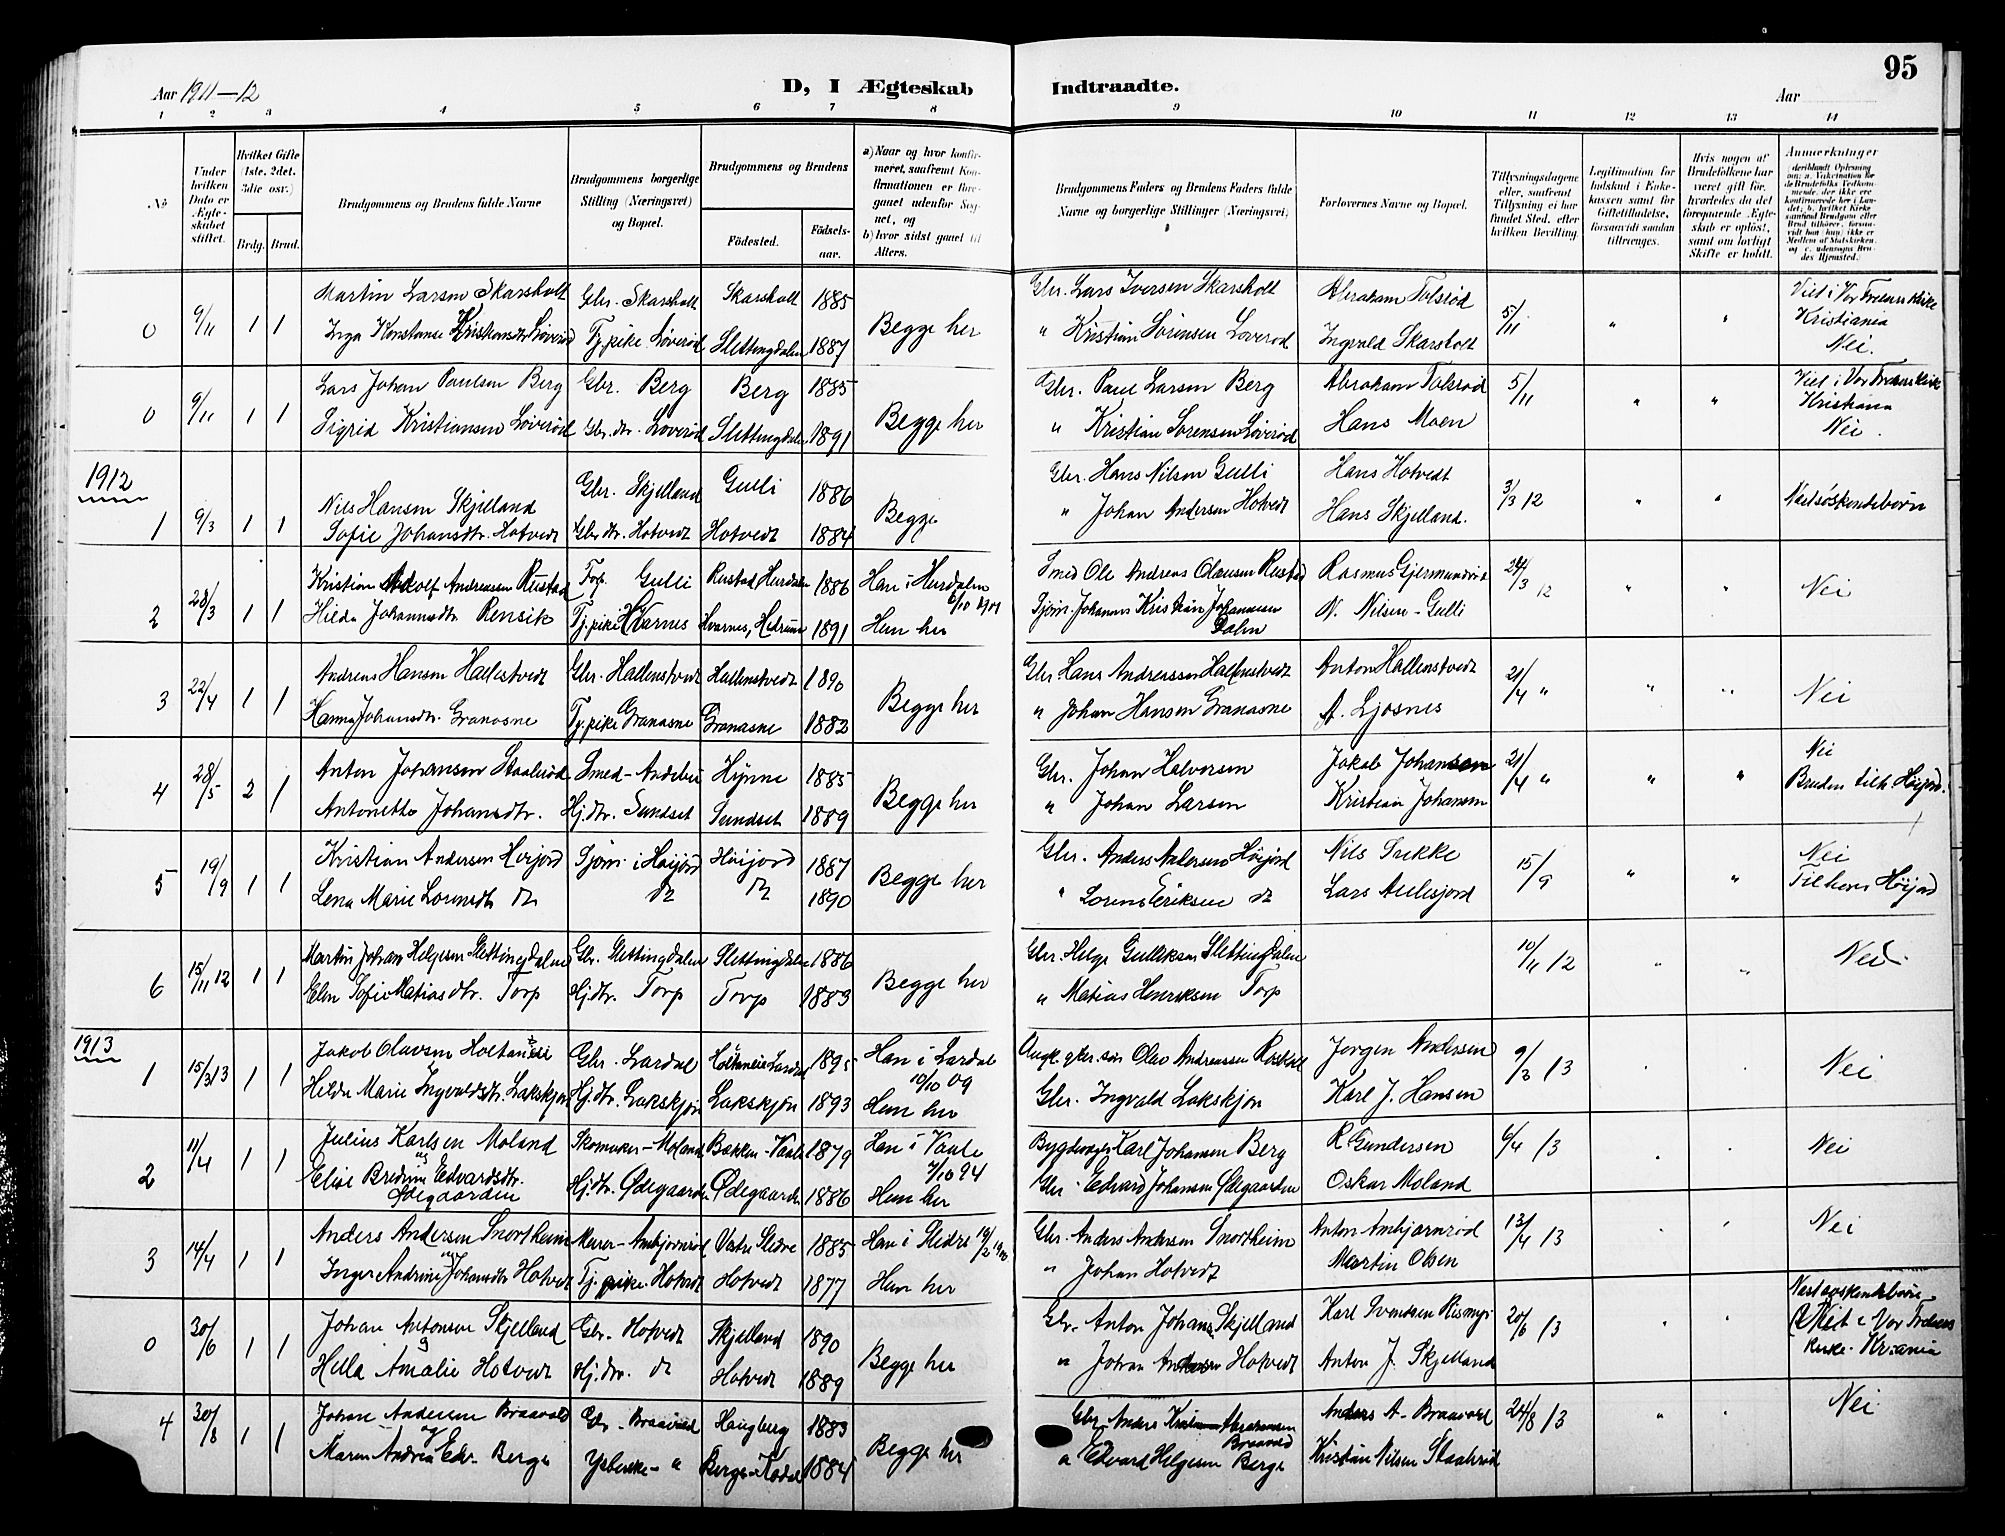 95
Aar 1911-12
D, I Ægteskab
Indtraadte.
Aar
1 2 3 4 5 6 7 8 9 10 11 12 13 14
No
Under hvilken Dato er Ægteskabet stiftet.
Hvilket Gifte (1ste, 2det, 3die osv.)
Brdg. Brud.
Brudgommens og Brudens fulde Navne
Brudgommens borgerlige Stilling (Næringsvei) og Bopæl.
Brudgommens og Brudens
Fødested.
Fødselsaar.
a) Naar og hvor konfirmeret, saafremt Konfirmationen er foregaaet udenfor Sognet, og
b) hvor sidst gaaet til Alters.
Brudgommens Faders og Brudens Faders fulde Navne og borgerlige Stillinger (Næringsvei)
Forlovernes Navne og Bopæl.
Tillysningsdagene eller, saafremt Tillysning ei har fundet Sted, efter hvilken Bevilling.
Legitimation for Indskud i Enkekassen samt for Giftetilladelse, forsaavidt saadan tiltrænges.
Hvis nogen af Brudefolkene har været gift før, hvorledes da det foregaaende Ægteskab er opløst, samt om lovligt Skifte er holdt.
Anmærkninger
0 9/11 1 1 Martin Larsen Skarsholt Gbr. Skarsholt Skarsholt 1885 Begge her Gbr. Lars Iversen Skarsholt Abraham Tolsrød 5/11 " " Viet i Vor Frelsers Kirke
Inga Konstanse Kristiansdtr Løverød Tj. pike Løverød Slettingdalen 1887 " Kristian Sørensen Løverød Ingvald Skarsholt Kristiania Nei.
0 9/11 1 1 Lars Johan Paulsen Berg Gbr. Berg Berg 1885 Begge her Gbr. Paul Larsen Berg Abraham Tolsrød 5/11 " " Viet i Vor Frelsers Kirke
Sigrid Kristiansen Løverød Gbr. dtr. Løverød Slettingdalen 1891 " Kristian Sørensen Løverød Hans Moen Kristiania Nei.
1912
1 9/3 1 1 Nils Hansen Skjelland Gbr. Skjelland Gulli 1886 Begge Gbr. Hans Nilsen Gulli Hans Hotvedt 3/3 12 " " Næstsøskendebørn
Sofie Johansdtr. Hotvedt Gbr. dtr. Hotvedt Hotvedt 1884 " Johan Andersen Hotvedt Hans Skjelland.
2 28/3 1 1 Kristian Adolf Andreasen Rustad Gulli Rustad, Hurdalen 1886 Han i Hurdalen Smed Ole Andreas Olausen Rustad Rasmus Gjermundrød 24/3 12 " " Nei
Hilda Johannesdtr Rensik Tj. pike Hvarnes Hvarnes, Hedrum 1891 Hun her Sjøm. Johannes Kristian Johannesen Dalen N. Nilsen - Gulli
3 22/4 1 1 Andreas Hansen Hallestvedt Gbr. Hallenstvedt Hallenstvedt 1890 Begge her Gbr Hans Andreassen Hallenstvedt Anton Hallenstvedt 21/4 " " " Nei
Hanna Johansdtr. Granaasne Tj. pike Granaasne Granaasne 1882 " Johan Hansen Granaasne A. Ljosnes
4 28/5 2 1 Anton Johansen Staalerød Smed - Andebu Hynne 1885 Begge her Gbr. Johan Halvorsen Jakob Johansen 21/4 " " " Nei
Antonette Johansdtr. Hj. dtr. Sundset Sundset 1889 " Johan Larsen Kristian Johansen Bruden tilh. Høijord.
5 19/9 1 1 Kristian Andersen Høijord Sjøm. i Høijord Høijord 1887 Begge her Gbr. Anders Andersen Høijord Nils Trekke 15/9 " " Nei
Lena Marie Lorensdtr do do do 1890 " Lorens Eriksen do Lars Aulesjord Tilhører Høijord
6 15/11 12 1 1 Martin Johan Helgesen Slettingdalen Gbr. Slettingdalen Slettingdalen 1886 Begge her Gbr. Helge Gulliksen Slettingdalen 10/11 12 " " Nei.
Elen Sofie Matiasdtr. Torp Hj. dtr. Torp Torp 1883 " Matias Henriksen Torp
1913
1 15/3 13 1 1 Jakob Olavsen Gbr. Lardal 1895 Han i Lardal 10/10 09 Olav Andreassen Jørgen Andersen 9/3 13 Nei
Hilda Marie Ingvaldsdtr. Lakskjøn Hj. dtr. Lakskjøn Lakskjøn 1893 Hun her Gbr. Ingvald Lakskjøn Karl J. Hansen
2 11/4 1 1 Julius Karlsen Moland Skomaker - Moland Bakken - Vaale 1879 Han i Vaale 7/10 94 Karl Johansen Berg R Gundersen 6/4 13 Nei
Elise Edvardsdtr. Ødegaarden Hj. dtr. Ødegaarden Ødegaarden 1886 Hun her Gbr. Edvard Johansen Ødegaarden Oskar Moland
3 14/4 1 1 Anders Andersen Snortheim Murer - Ambjørnrød Vestre Slidre 1885 Han i Slidre Gbr. Anders Andersen Snortheim Anton Ambjørnrød 13/4 13 Nei
Inger Andrine Johansdtr Hotvedt Tj. pike Hotvedt Hotvedt 1877 Hun her " Johan Hotvedt Martin Olsen
0 30/6 1 1 Johan Antonsen Skjelland Gbr. Hotvedt Skjelland 1890 Begge her Gbr. Anton Johans. Skjelland Karl Svendsen Rismyr 20/6 13 Næstsøskendebørn
Hella Amalie Hotvedt Hj. dtr. do Hotvedt 1889 " Johan Andersen Hotvedt Anton J. Skjelland Viet i Vor Frelsers Kirke - Kr.ania
4 30/8 1 1 Johan Andersen Braavold Gbr - Braavold Haugberg 1883 Begge her Gbr. Anders Abrahamsen Braavold Anders A - Braavold 24/8 13 " " Nei
Maren Andrea Edv. Berge Berge - Kodal 1884 " Edvard Helgesen Berge Kristian Nilsen Staalerød